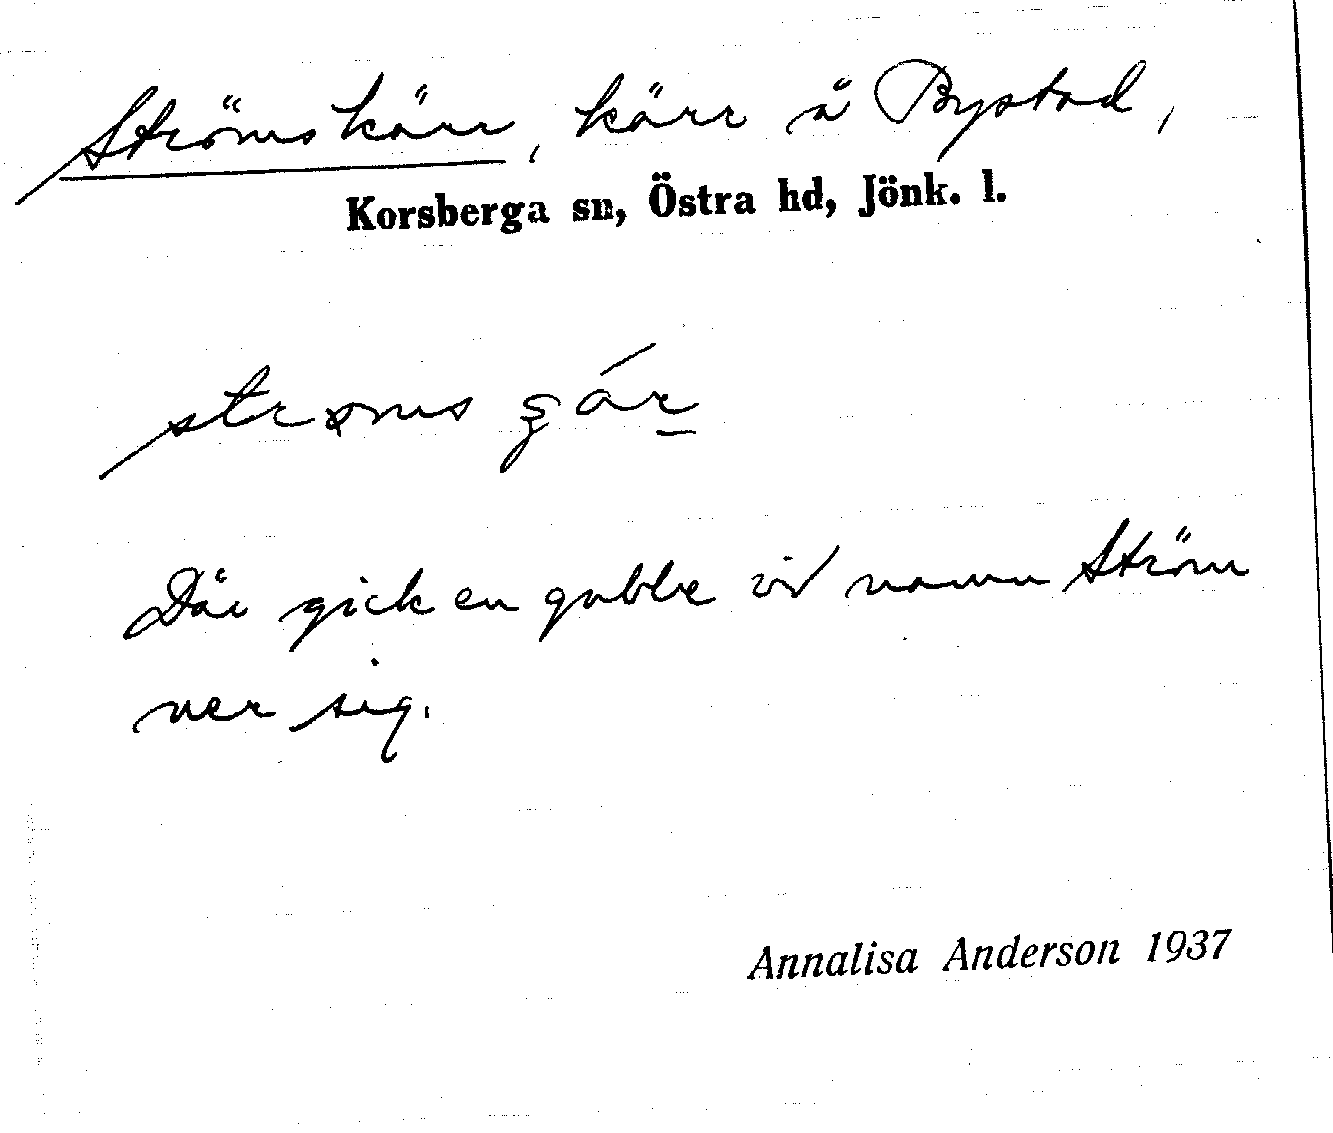 Strömskärr, kärr å Bystad,
Korsberga sn, Östra hd, Jönk. l.
strøms
Där gick en gubbe vid namn Ström
ner sig.
Annalisa Anderson 1937